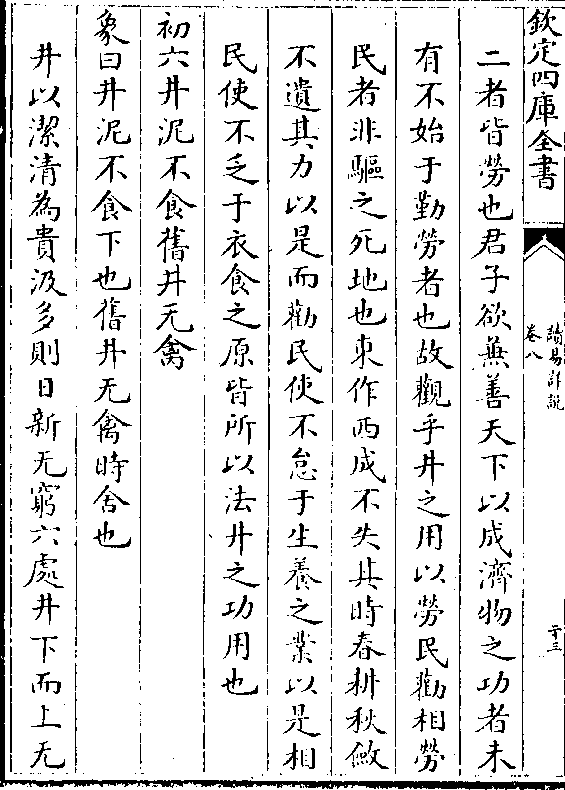 欽定四庫全書
讀易詳說
卷八
二十三
二者皆勞也君子欲兼善天下以成濟物之功者未
有不始于勤勞者也故觀乎井之用以勞民勸相勞
民者非驅之死地也東作西成不失其時春耕秋斂
不遺其力以是而勸民使不怠于生養之業以是相
民使不乏于衣食之原皆所以法井之功用也
初六井泥不食舊井无禽
象曰井泥不食下也舊井无禽時舍也
井以潔清為貴汲多則日新无窮六處井下而上无